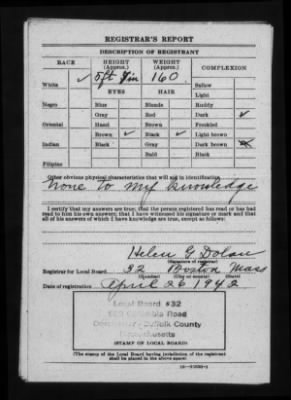 REGISTRAR'S REPORT
DESCRIPTION OF REGISTRANT
RACE HEIGHT (Approx.) WEIGHT (Approx.) COMPLEXION
White ✓ 5ft 160 Sallow
EYES HAIR Light
Negro Blue Blonde Ruddy
Gray Red Dark ✓
Oriental Hazel Brown Freckled
Brown ✓ Black ✓ Light brown
Indian Black Gray Dark brown
Bald Black
Filipino
Other obvious physical characteristics that will aid in identification
None to my knowledge
I certify that my answers are true; that the person registered has read or has had
read to him his own answers; that I have witnessed his signature or mark and that
all of his answers of which I have knowledge are true, except as follows:
Helen G Dolan
(Signature of registrar)
Registrar for Local Board 32 Boston Mass
(Number) (City or county) (State)
Date of registration April 26 1942
Local Board #32
Columbia Road
Suffolk County
Massachusetts
(STAMP OF LOCAL BOARD)
(The stamp of the Local Board having jurisdiction of the registrant
shall be placed in the above space.)